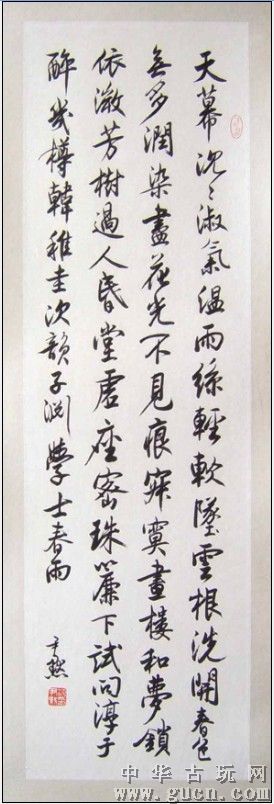 天幕沈〻淑氣溫雨絲輕軟墜雲根洗開春色
無多潤染盡花光不見痕寂寞畫樓和夢鎖
依溦芳樹過人昏堂虛座密珠簾下試問淳于
醉幾樽韓稚圭次韻子淵學士春雨
尹默
中华古玩网
www.gucn.com